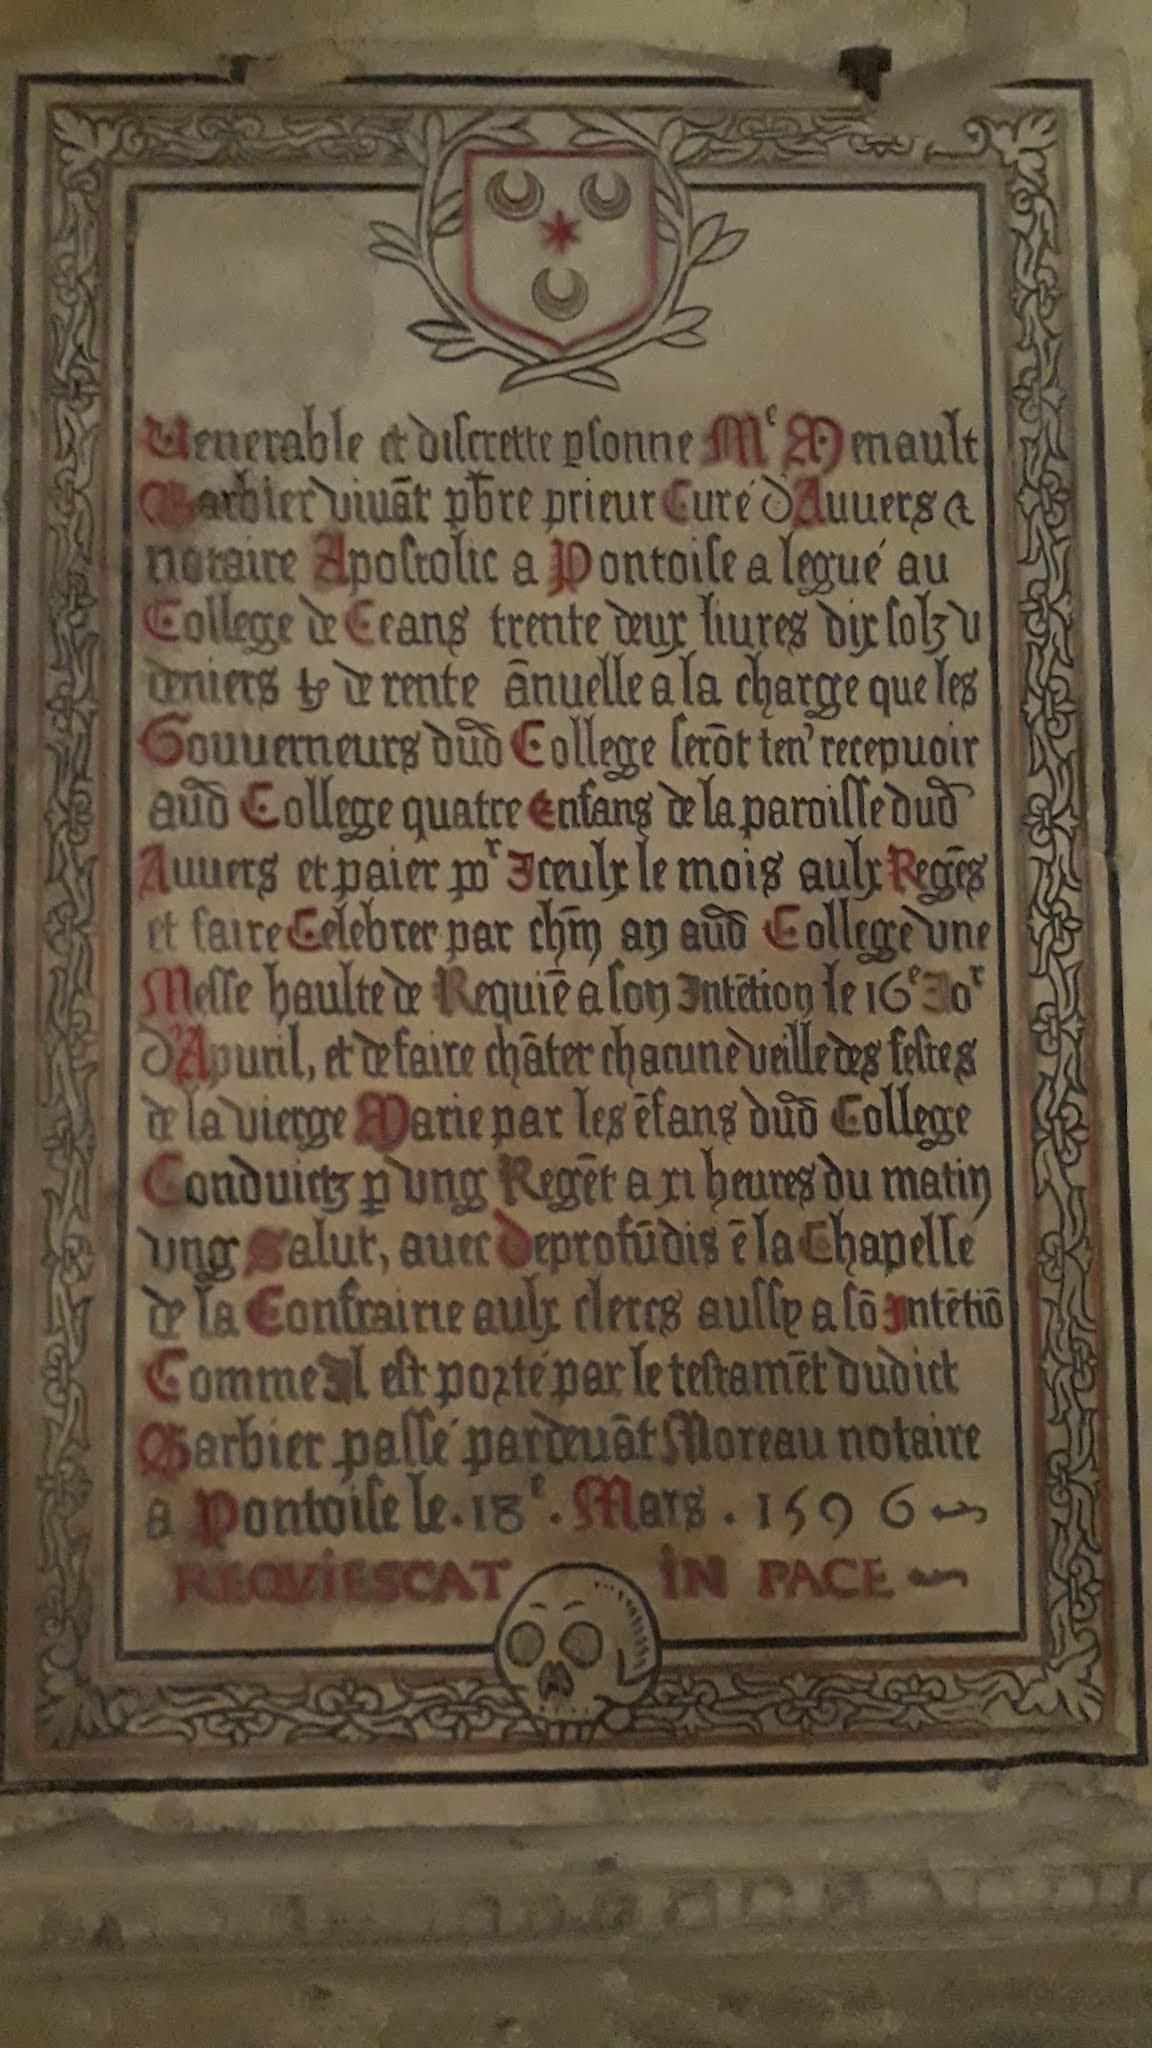 Venerable et discrette psonne Mᵉ Menault
Barbier vivāt pb̄re prieur Curé d'Auuers &
notaire Apostolic a Pontoise a legué au
College de Ceans trente deux liures dix solz v
deniers tz de rente ānuelle a la charge que les
Gouuerneurs dud̄ College serōt ten' recepuoir
aud̄ College quatre Enfans de la paroisse dud̄
Auuers et paier poʳ Iceulx le mois aulx Regēs
et faire Celebrer par chm̄ an aud̄ College vne
Messe haulte de Requiē a son Intētion le 16ᵉ Joʳ
d'Apuril, et de faire chāter chacune veille des festes
de la vierge Marie par les ēfans dud̄ College
Conduictz p vng Regēt a xi heures du matin
vng Salut, auec Deprofūdis ē la Chapelle
de la Confrairie aulx clercs aussy a sō Intētiō
Comme Il est porté par le testamēt dudict
Barbier passé pardeuāt Moreau notaire
a Pontoise le . 18ᵉ . Mars . 1596
REQUIESCAT IN PACE